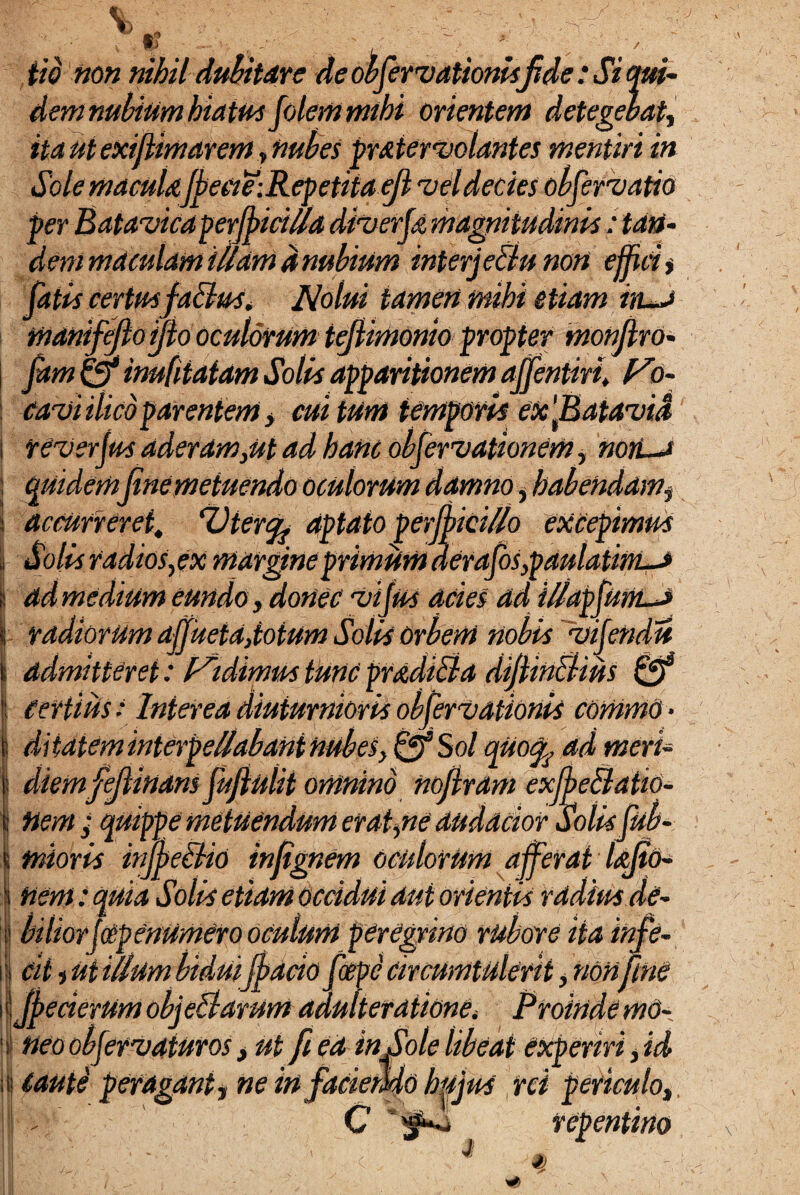 tio non nihil dubitare de observationis fide: Si qui-
dem nubium hiatus solem mihi orientem detegebat,
ita ut existimarem, nubes prætervolantes mentiri in
Sole maculæ speciē: Repetita est vel decies observatio
per Batavica perspicilla diversæ magnitudinis: tan-
dem maculam illam à nubium interjectu non effici,
satis certus factus. Nolui tamen mihi etiam in
manifesto isto oculorum testimonio propter monstro-
sam & inusitatam Solis apparitionem assentiri. Vo-
cavi ilicò parentem, cui tum temporis ex Bataviâ
reversus aderam, ut ad hanc observationem, non
quidem sine metuendo oculorum damno, habendam,
accurreret. Vterq; aptato perspicillo excepimus
Solis radios, ex margine primùm derasos, paulatim
ad medium eundo, donec visus acies ad illapsum
radiorum assueta, totum Solis orbem nobis visendū
admitteret: Vidimus tunc prædicta distinctius &
certiùs: Interea diuturnioris observationis commo-
ditatem interpellabant nubes, & Sol quoq; ad meri-
diem festinans sustulit omninò nostram exspectatio-
nem; quippe metuendum erat, ne audacior Solis sub-
mioris inspectio insignem oculorum afferat læsio-
nem: quia Solis etiam occidui aut orientis radius de-
bilior sæpenumero oculum peregrino rubore ita infe-
cit, ut illum bidui spacio sæpè circumtulerit, non sine
specierum objectarum adulteratione. Proinde mo-
neo observaturos, ut si ea in Sole libeat experiri, id
cautè peragant, ne in faciendo hujus rei periculo,
C repentino